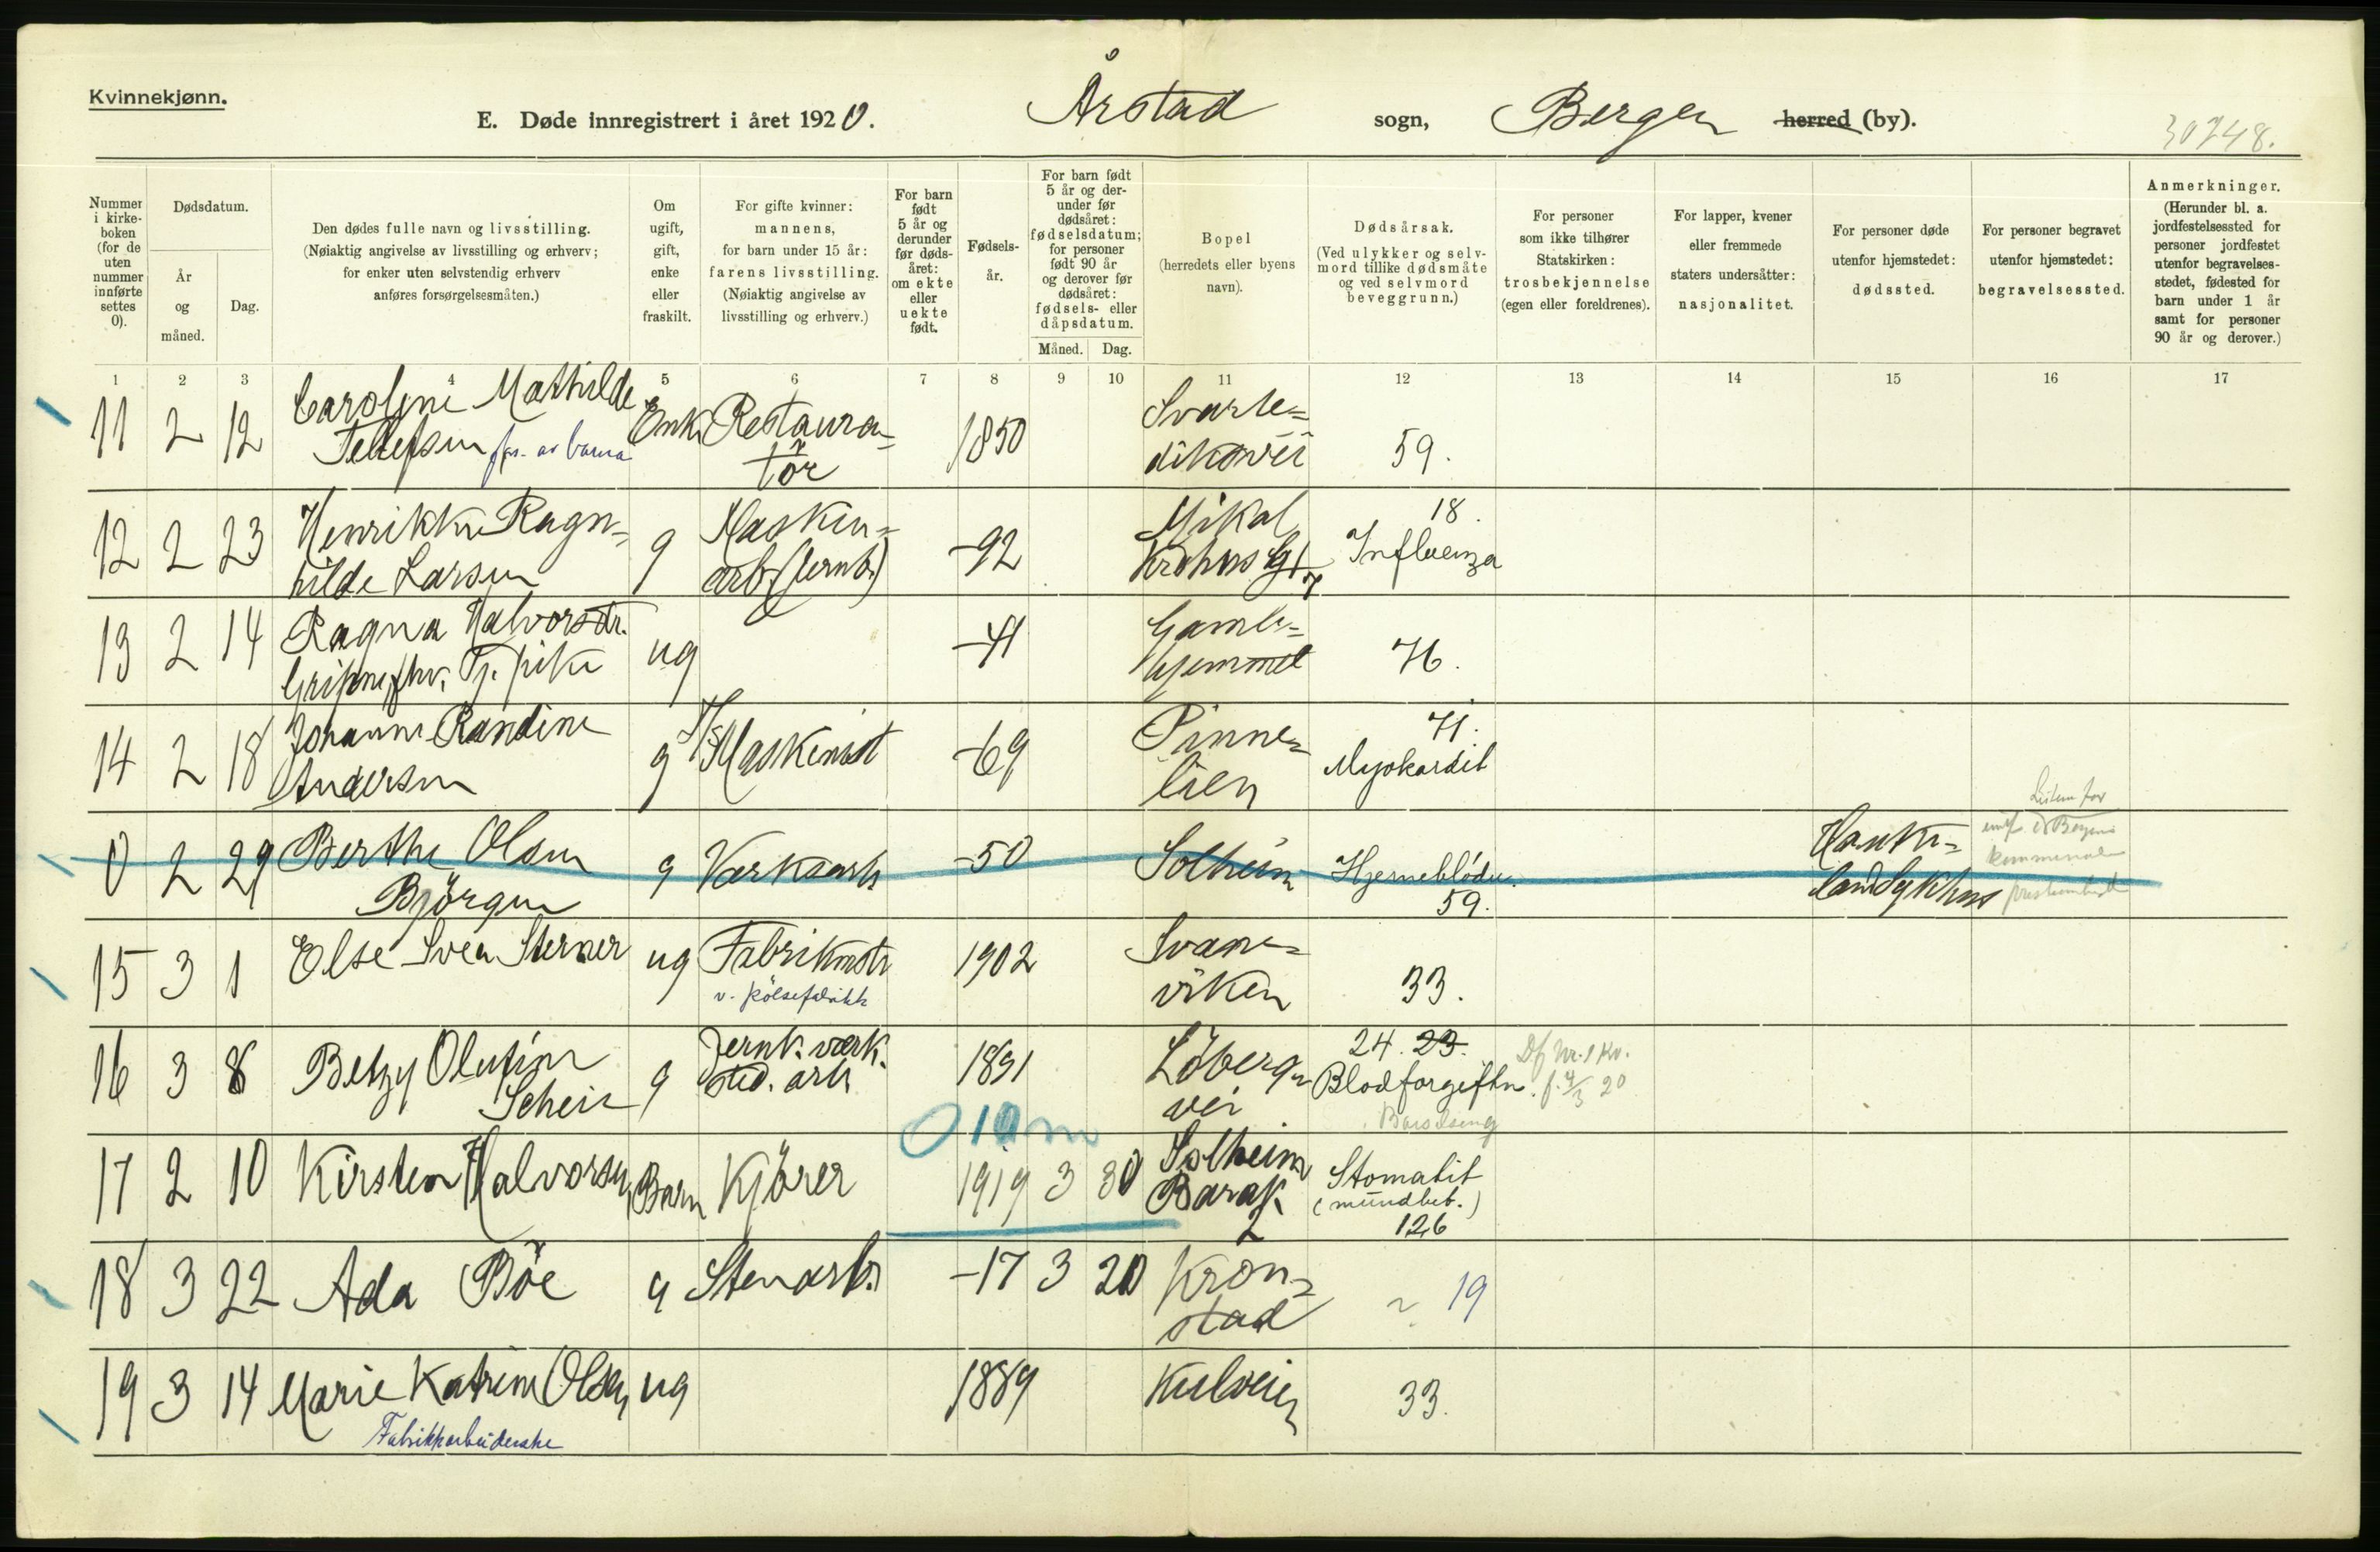 Kvinnekjønn.
E. Døde innregistrert i året 1920. Årstad sogn, Bergen herred (by).
30248.
Nummer i kirke-boken (for de uten nummer innførte settes 0).
Dødsdatum.
År og måned.
Dag.
Den dødes fulle navn og livsstilling.
(Nøiaktig angivelse av livsstilling og erhverv;
for enker uten selvstendig erhverv
anføres forsørgelsesmåten.)
Om ugift, gift, enke eller fraskilt.
For gifte kvinner:
mannens,
for barn under 15 år:
farens livsstilling.
(Nøiaktig angivelse av
livsstilling og erhverv.)
For barn født 5 år og derunder før døds-året: om ekte eller uekte født.
Fødsels-år.
For barn født 5 år og der-under før dødsåret: fødselsdatum; for personer født 90 år og derover før dødsåret: fødsels- eller dåpsdatum.
Måned. Dag.
Bopel
(herredets eller byens
navn).
Dødsårsak.
(Ved ulykker og selv-
mord tillike dødsmåte
og ved selvmord
beveggrunn.)
For personer
som ikke tilhører
Statskirken:
trosbekjennelse
(egen eller foreldrenes).
For lapper, kvener
eller fremmede
staters undersåtter:
nasjonalitet.
For personer døde
utenfor hjemstedet:
dødssted.
For personer begravet
utenfor hjemstedet:
begravelsessted.
Anmerkninger.
(Herunder bl. a.
jordfestelsessted for
personer jordfestet
utenfor begravelses-
stedet, fødested for
barn under 1 år
samt for personer
90 år og derover.)
1 2 3 4 5 6 7 8 9 10 11 12 13 14 15 16 17
11 2 12 Caroline Mathilde Tellefsen fors. av barna Enke Restaura-tör 1850 Svarte-diksvei 59.
12 2 23 Henrikke Ragn-hilde Larsen g Maskin-arb. (Jernb.) -92 Mikal Krohns Gt 7 18. Influenza
13 2 14 Ragna Halvorsdtr. fhv. Tj. pike ug -41 Gamle-hjemmet 76.
14 2 18 Johanne Randine Andersen g Maskinist -69 Pinne-lien 71. Myokardit
0 2 29 Berthe Olsen Björgen g Værksarb -50 Solheim Hjerneblødn. 59. Hauke-land Sykhus
15 3 1 Else Svea Sterner ug Fabrikmstr v. pölsefabrikk 1902 Svane-viken 33.
16 3 8 Betzy Olufine Schei g Jernb. værk-sted. arb 1891 Löbergs-vei 24. 23. Blodforgiftn. Barselseng Df nr. 1 Kv. f. 4/3 20
17 2 10 Kirsten Halvorsen Barn Kjörer 0 10 m 1919 3 30 Solheim Barak 2 Stomatit (mundbet.) 126
18 3 22 Ada Böe g Stenarb. -17 3 20 Kron-stad ~ 19
19 3 14 Marie Katrine Olsen ug 1889 Kulveien 33.
Fabrikkarbeiderske